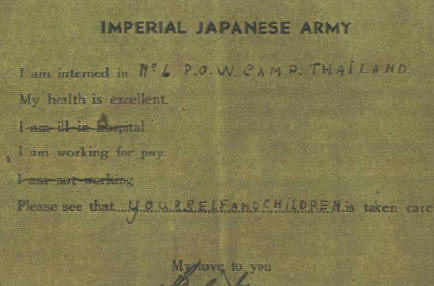 IMPERIAL JAPANESE ARMY
I am interned in Nº 6 P.O.W. CAMP. THAILAND
My health is excellent.
I am ill in hospital.
I am working for pay.
I am not working
Please see that YOURSELF AND CHILDREN is taken care
My love to you